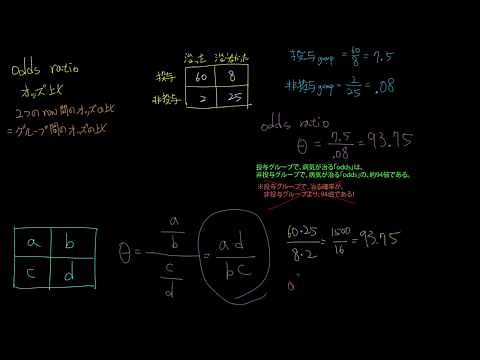 odds ratio
オッズ比
2つのrow間のオッズの比
=グループ間のオッズの比
治った 治らなかった
投与 60 8
非投与 2 25
投与group = 60/8 = 7.5
非投与group = 2/25 = .08
odds ratio
θ = 7.5/.08 = 93.75
投与グループで、病気が治る「odds」は、
非投与グループで、病気が治る「odds」の、約94倍である。
※投与グループで、治る確率が、
非投与グループより、94倍である!
a b
c d
θ = (a/b)/(c/d) = ad/bc
60・25/8・2 = 1500/16 = 93.75